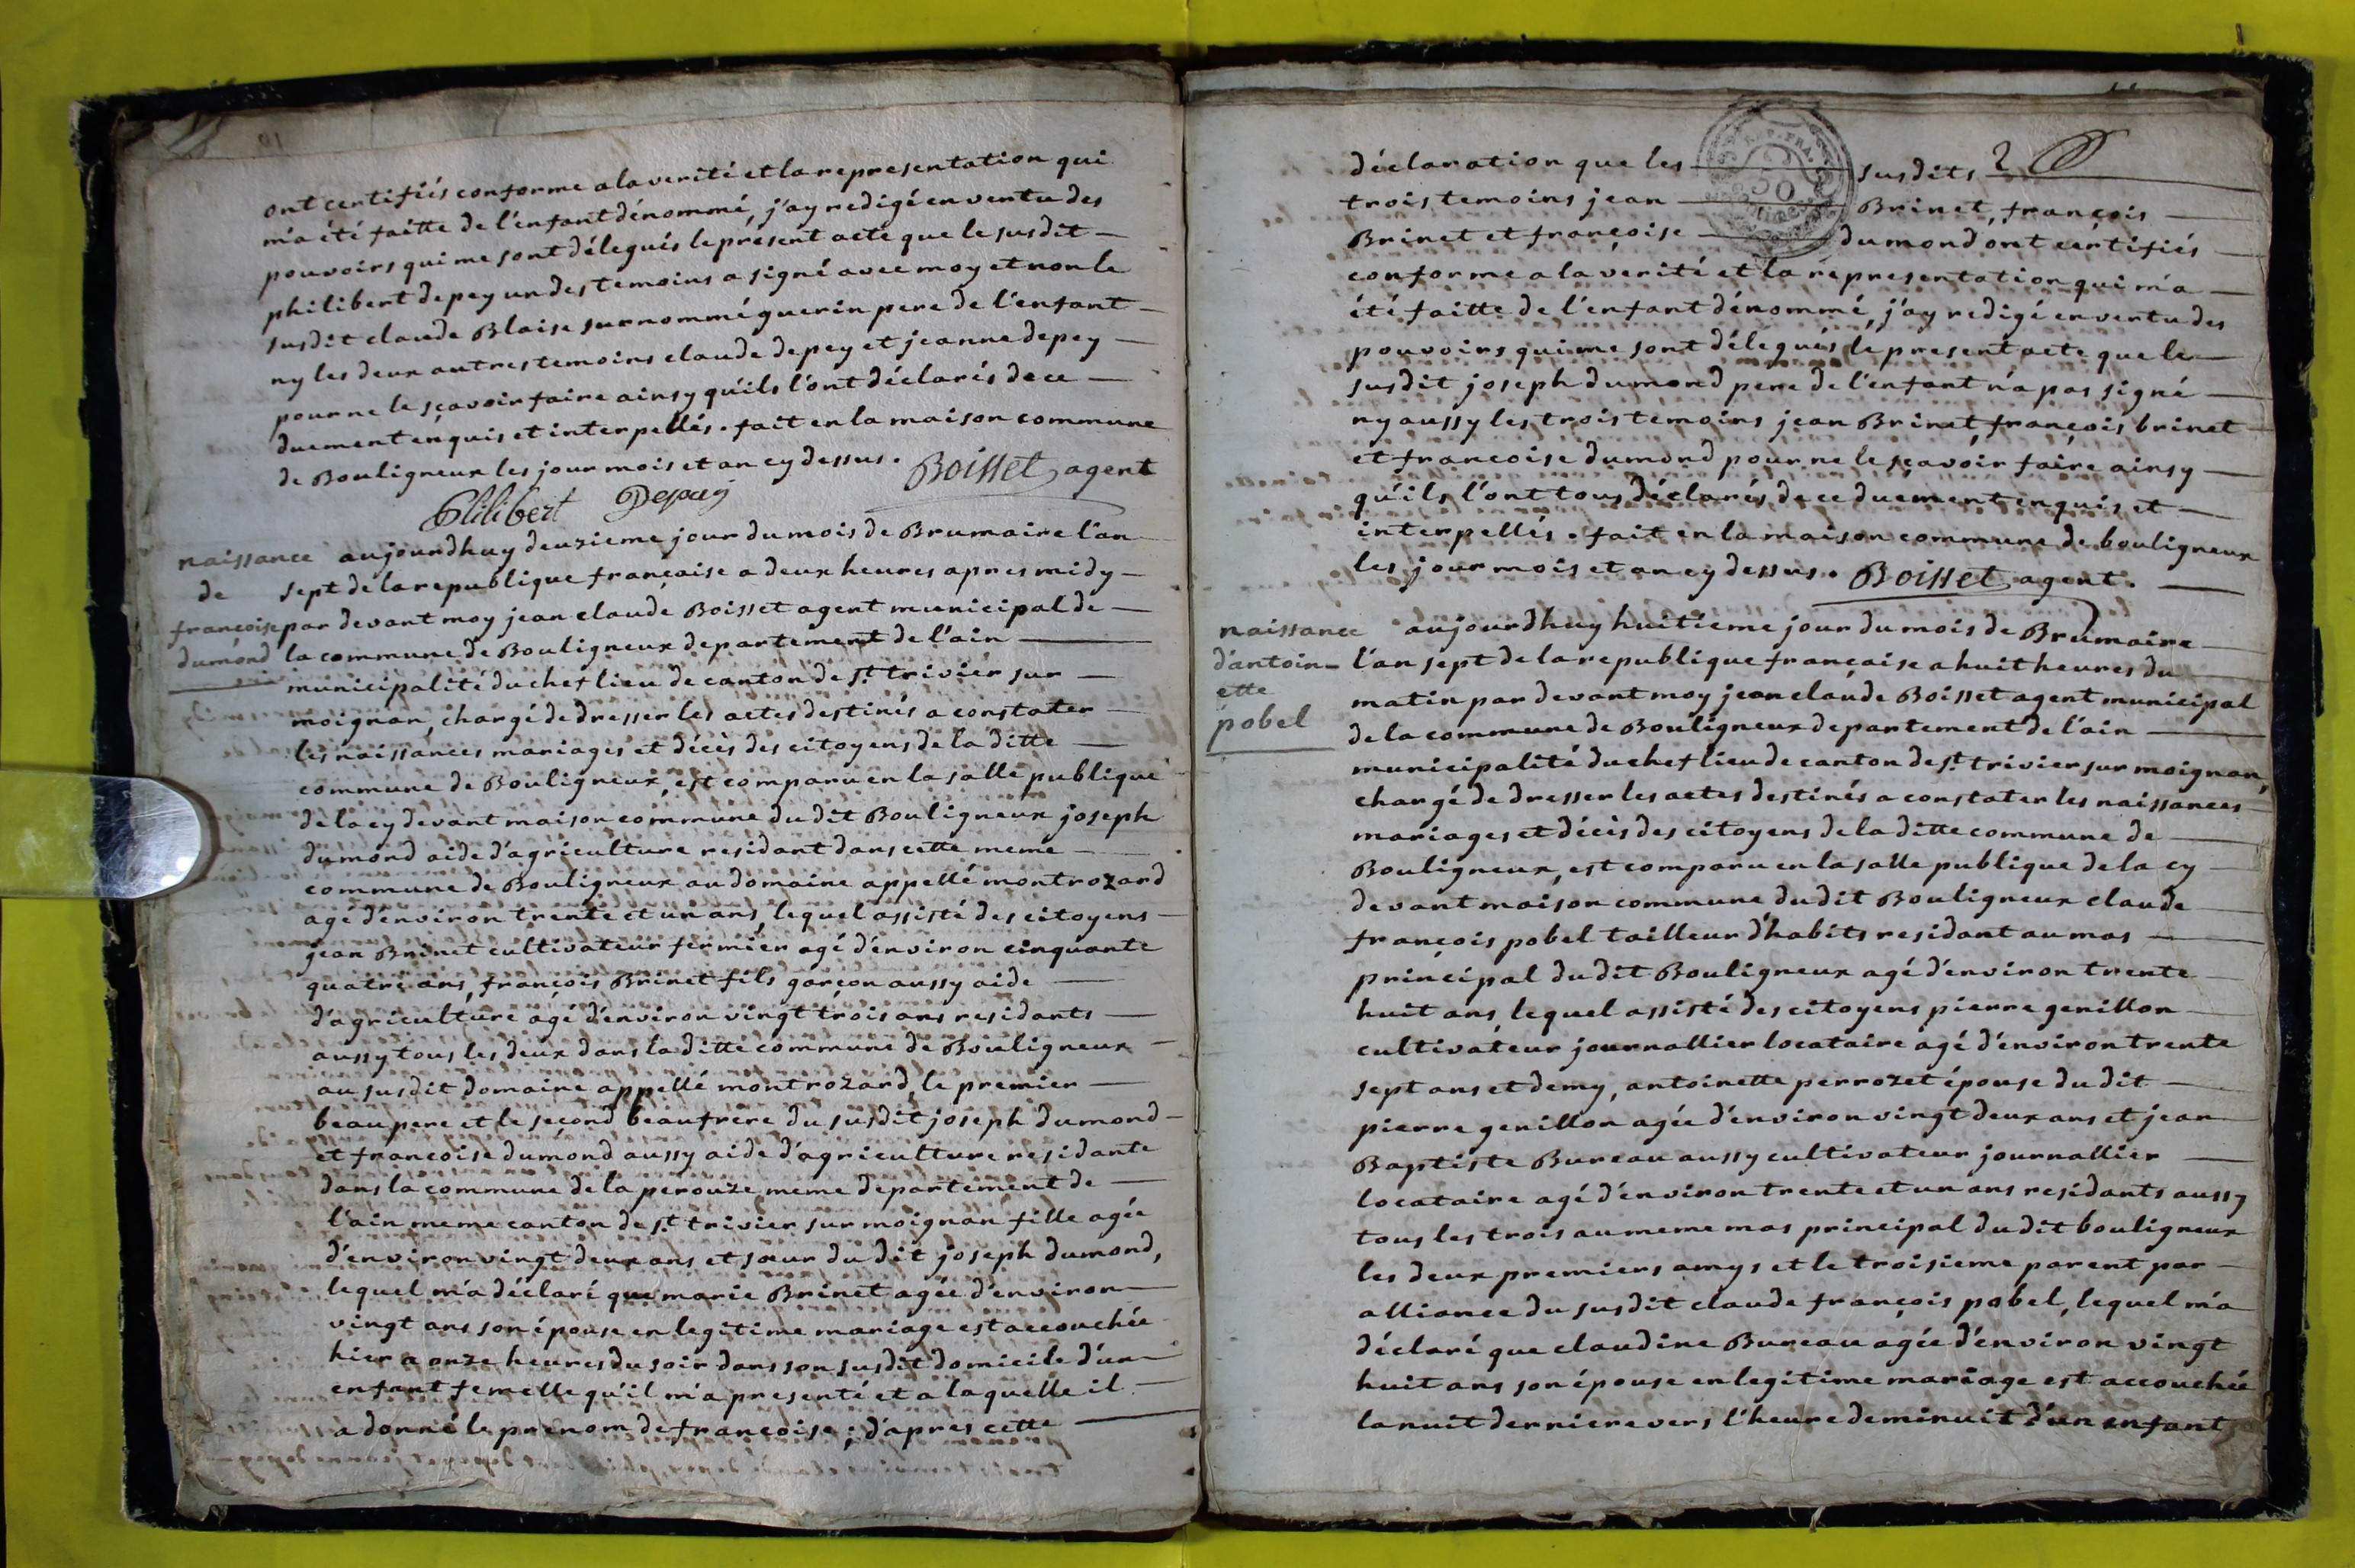 ont certifiés conforme a la verité et la representation qui
m'a été faitte de l'enfant dénommé, j'ay redigé en vertu des
pouvoirs qui me sont délegués le présent acte que le susdit
philibert depey un des temoins a signé avec moy et non le
susdit claude Blaise surnommé guerin pere de l'enfant
ny les deux autres temoins claude depey et jeanne depey
pour ne le sçavoir faire ainsy qu'ils l'ont déclarés de ce
duement enquis et interpellés. fait en la maison commune
de Bouligneux les jour mois et an cy dessus. Boisset agent
Philibert Depey
naissance
de
françoise
dumond
aujourdhuy deuzieme jour du mois de Brumaire l'an
sept de la republique française a deux heures apres midy
par devant moy jean claude Boisset agent municipal de
la commune de Bouligneux departement de l'ain
municipalité du chef lieu de canton de st. trivier sur
moignan, chargé de dresser les actes destinés a constater
les naissances mariages et décès des citoyens de la ditte
commune de Bouligneux, est comparu en la salle publique
de la cy devant maison commune du dit Bouligneux joseph
dumond aide d'agriculture residant dans cette meme
commune de Bouligneux au domaine appellé montrozard
agé d'environ trente et un ans, lequel assisté des citoyens
jean Brinet cultivateur fermier agé d'environ cinquante
quatre ans, françois Brinet fils garçon aussy aide
d'agriculture agé d'environ vingt trois ans residants
aussy tous les deux dans la ditte commune de Bouligneux
au susdit domaine appellé montrozard, le premier
beaupere et le second beaufrere du susdit joseph dumond
et françoise dumond aussy aide d'agriculture residante
dans la commune de la perouze meme departement de
l'ain meme canton de st trivier sur moignan fille agée
d'environ vingt deux ans et sœur du dit joseph dumond,
lequel m'a déclaré que marie Brinet agée d'environ
vingt ans son épouse en legitime mariage est accouchée
hier a onze heures du soir dans son susdit domicile d'un
enfant femelle qu'il m'a presenté et a laquelle il
a donné le prenom de françoise; d'apres cette
déclaration que les susdits 2
trois temoins jean Brinet, françois
Brinet et françoise dumond ont certifiés
conforme a la verité et la representation qui m'a
été faitte de l'enfant dénommé, j'ay redigé en vertu des
pouvoirs qui me sont délegués le present acte que le
susdit joseph dumond pere de l'enfant n'a pas signé
ny aussy les trois temoins jean Brinet, françois brinet
et francoise dumond pour ne le sçavoir faire ainsy
qu'ils l'ont tous déclarés de ce duement enquis et
interpellés. fait en la maison commune de bouligneux
les jour mois et an cy dessus. Boisset agent.
naissance
d'antoin-
ette
pobel
aujourdhuy huitieme jour du mois de Brumaire
l'an sept de la republique française a huit heures du
matin par devant moy jean claude Boisset agent municipal
de la commune de Bouligneux departement de l'ain
municipalité du chef lieu de canton de st. trivier sur moignan,
chargé de dresser les actes destinés a constater les naissances
mariages et décès des citoyens de la ditte commune de
Bouligneux, est comparu en la salle publique de la cy
devant maison commune du dit Bouligneux claude
françois pobel tailleur d'habits residant au mas
principal du dit Bouligneux agé d'environ trente
huit ans, lequel assisté des citoyens pierre genillon
cultivateur journallier locataire agé d'environ trente
sept ans et demy, antoinette perrozet épouse du dit
pierre genillon agée d'environ vingt deux ans et jean
Baptiste Bureau aussy cultivateur journallier
locataire agé d'environ trente et un ans residants aussy
tous les trois au meme mas principal du dit bouligneux
les deux premiers amys et le troisieme parent par
alliance du susdit claude françois pobel, lequel m'a
déclaré que claudine Bureau agée d'environ vingt
huit ans son épouse en legitime mariage est accouchée
la nuit derniere vers l'heure de minuit d'un enfant